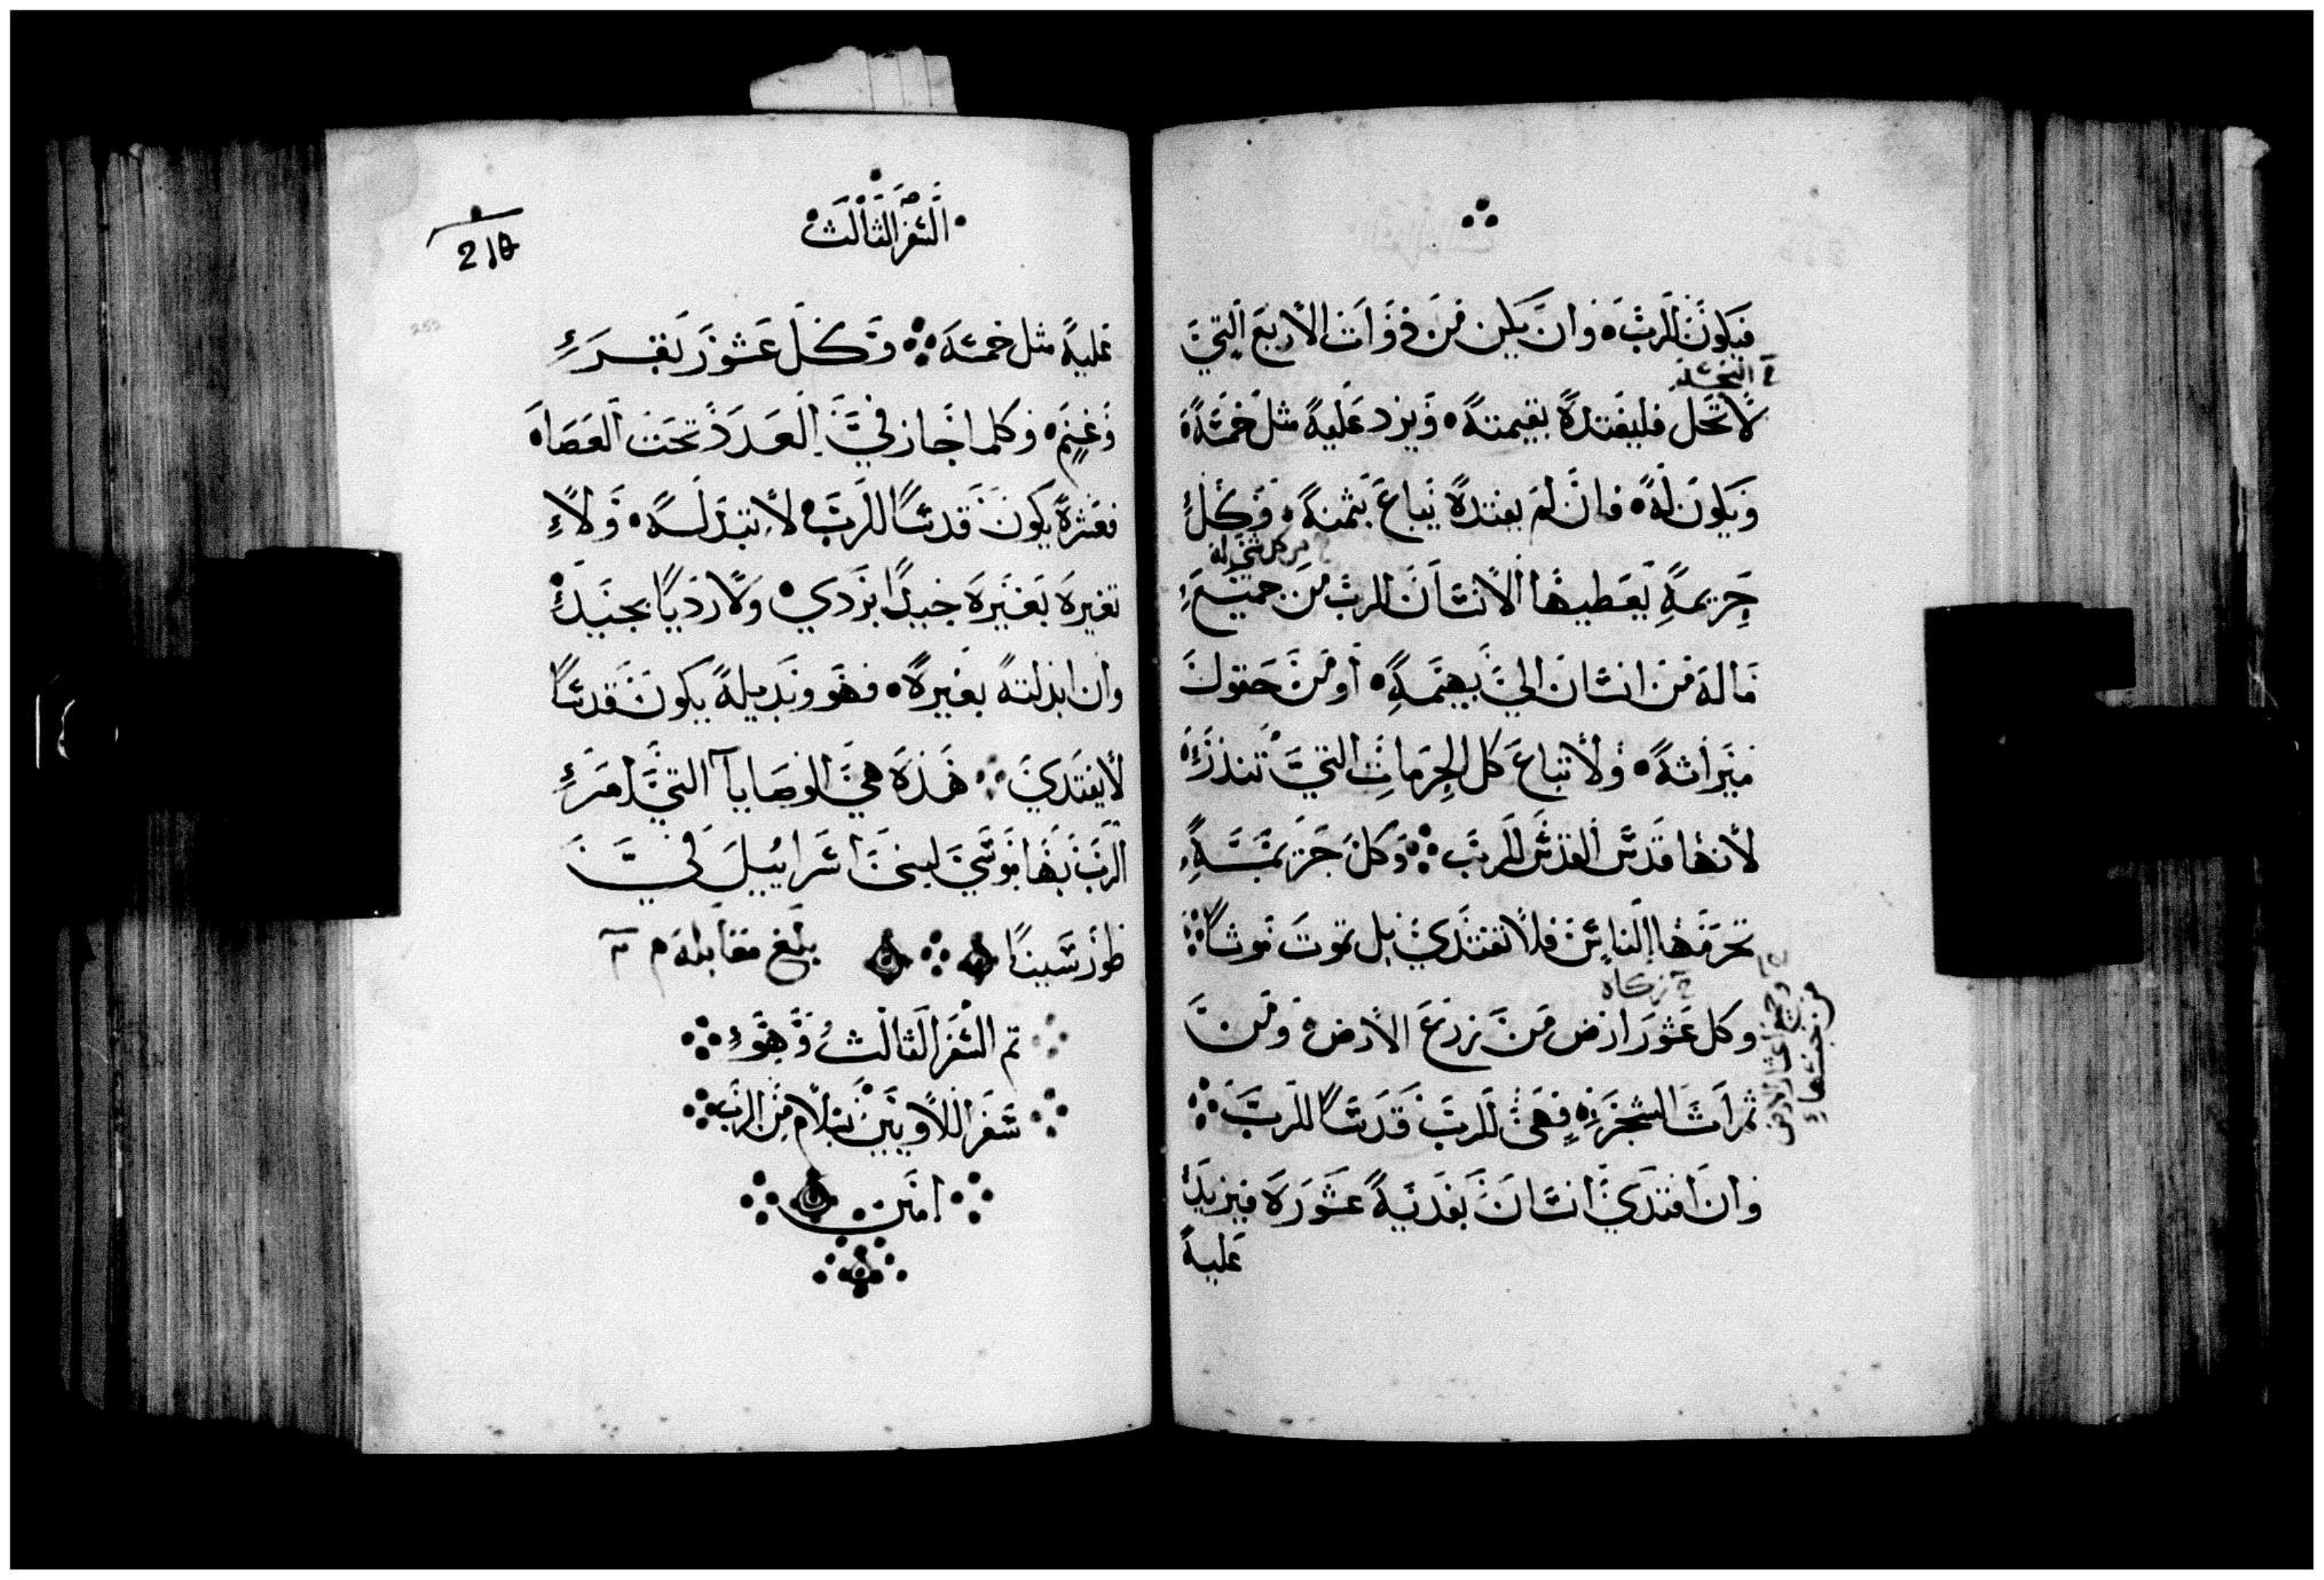 فيكون للرب وان يكن من ذوات الأربع التي
النجسة
لا تحل فليفتده بقيمته ويزد عليه مثل خمسه
ويكون له فان لم يفتده يباع بثمنه وكل
من كل شي له
حريمة يعطيها الانسان للرب من جميع
ماله من انسان الي بهيمة او من حقول
ميراثه ولا تباع كل الحرمات التي تنذر
لأنها قدس القدس للرب وكل حريمة
تحرمها الناس فلا تفتدي بل تموت موتا
زكاه
وكل عشور ارض من زرع الارض ومن
ثمرات الشجر فهي للرب قدسا للرب
وان افتدي انسان بفدية عشوره فيزيد
عليه
وجميع اعشار الارض
من حبها
السفر الثالث
عليه مثل خمسه وكل عشور بقر
وغنم وكلما اجاز في العدد تحت العصاه
فعشره يكون قدسا للرب لا تبدله ولا
تغيره بغيره جيدا بردي ولا رديا بجيد
وان ابدلته بغيره فهو وبديله يكون قدسا
لا يفتدي هذه هي الوصايا التي امر
الرب بها موسي لبني اسراييل في
طور سينا بلغ مقابلة
تم السفر الثالث وهو
سفر اللاويين بسلام من الرب
امين